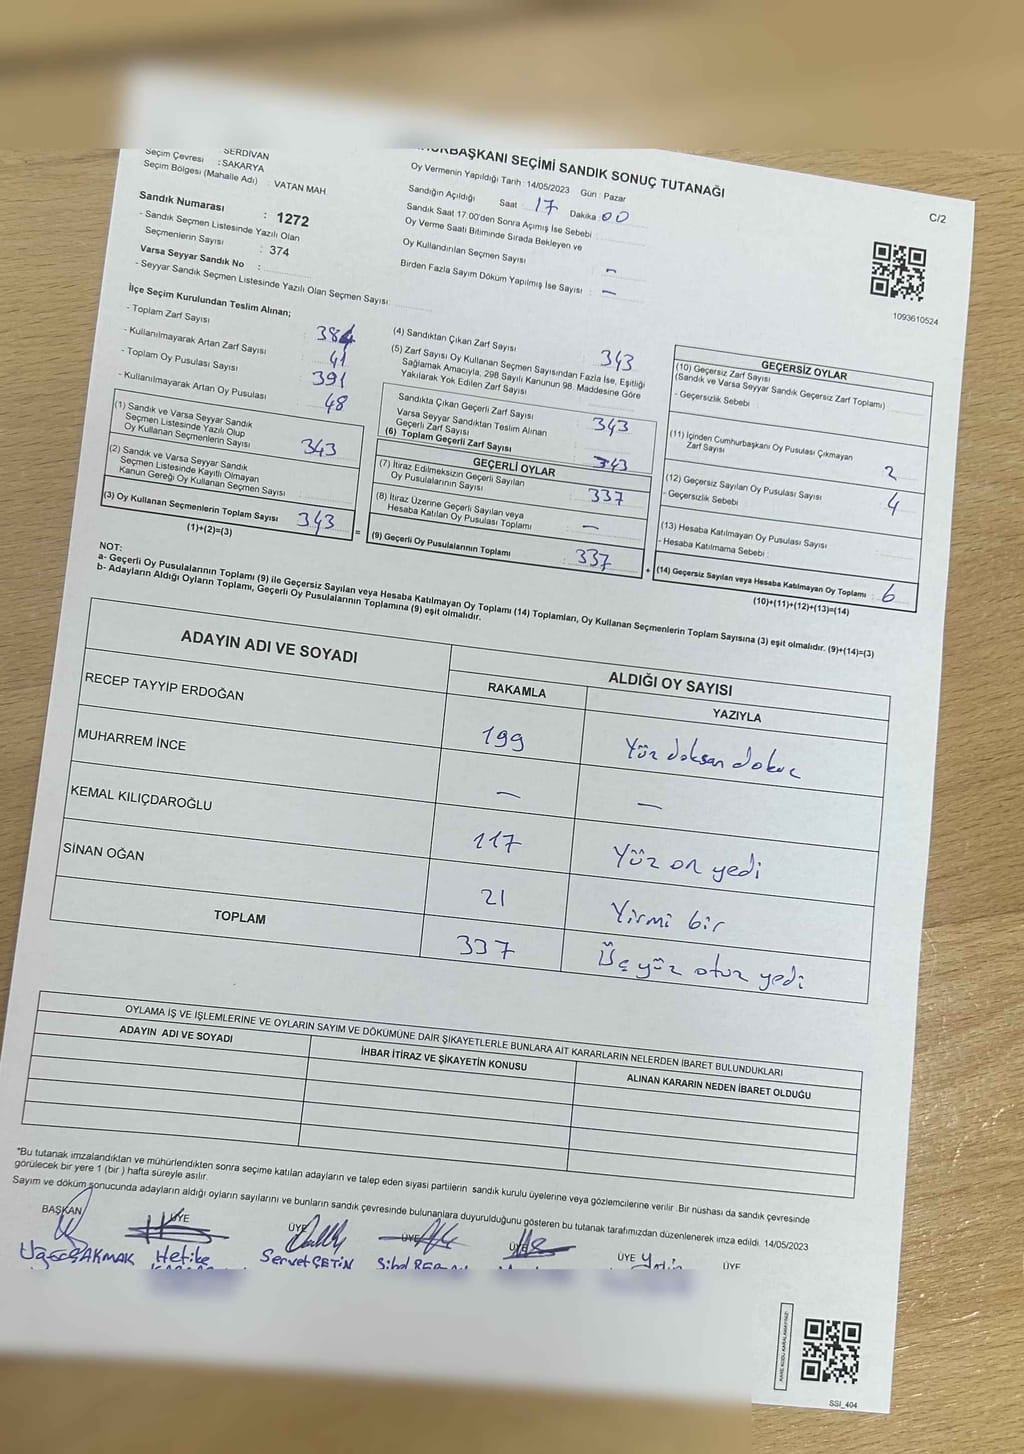 BAŞKANI SEÇİMİ SANDIK SONUÇ TUTANAĞI
C/2
SERDİVAN
Seçim Çevresi : SAKARYA
Seçim Bölgesi (Mahalle Adı) : VATAN MAH
Sandık Numarası : 1272
- Sandık Seçmen Listesinde Yazılı Olan
Seçmenlerin Sayısı : 374
Varsa Seyyar Sandık No :
- Seyyar Sandık Seçmen Listesinde Yazılı Olan Seçmen Sayısı :
Oy Vermenin Yapıldığı Tarih : 14/05/2023 Gün : Pazar
Sandığın Açıldığı Saat : 17 Dakika : 00
Sandık Saat 17.00'den Sonra Açımış İse Sebebi :
Oy Verme Saati Bitiminde Sırada Bekleyen ve
Oy Kullandırılan Seçmen Sayısı : -
Birden Fazla Sayım Döküm Yapılmış İse Sayısı : -
1093610524
İlçe Seçim Kurulundan Teslim Alınan;
- Toplam Zarf Sayısı : 384
- Kullanılmayarak Artan Zarf Sayısı : 41
- Toplam Oy Pusulası Sayısı : 391
- Kullanılmayarak Artan Oy Pusulası : 48
(1) Sandık ve Varsa Seyyar Sandık
Seçmen Listesinde Yazılı Olup
Oy Kullanan Seçmenlerin Sayısı : 343
(2) Sandık ve Varsa Seyyar Sandık
Seçmen Listesinde Kayıtlı Olmayan
Kanun Gereği Oy Kullanan Seçmen Sayısı :
(3) Oy Kullanan Seçmenlerin Toplam Sayısı : 343
(1)+(2)=(3)
(4) Sandıktan Çıkan Zarf Sayısı : 343
(5) Zarf Sayısı Oy Kullanan Seçmen Sayısından Fazla İse, Eşitliği
Sağlamak Amacıyla, 298 Sayılı Kanunun 98. Maddesine Göre
Yakılarak Yok Edilen Zarf Sayısı
Sandıkta Çıkan Geçerli Zarf Sayısı : 343
Varsa Seyyar Sandıktan Teslim Alınan
Geçerli Zarf Sayısı
(6) Toplam Geçerli Zarf Sayısı : 343
GEÇERLİ OYLAR
(7) İtiraz Edilmeksizin Geçerli Sayılan
Oy Pusulalarının Sayısı : 337
(8) İtiraz Üzerine Geçerli Sayılan veya
Hesaba Katılan Oy Pusulası Toplamı : -
=
(9) Geçerli Oy Pusulalarının Toplamı : 337
+
GEÇERSİZ OYLAR
(10) Geçersiz Zarf Sayısı
(Sandık ve Varsa Seyyar Sandık Geçersiz Zarf Toplamı)
- Geçersizlik Sebebi :
(11) İçinden Cumhurbaşkanı Oy Pusulası Çıkmayan
Zarf Sayısı : 2
(12) Geçersiz Sayılan Oy Pusulası Sayısı : 4
- Geçersizlik Sebebi :
(13) Hesaba Katılmayan Oy Pusulası Sayısı
- Hesaba Katılmama Sebebi :
(14) Geçersiz Sayılan veya Hesaba Katılmayan Oy Toplamı : 6
(10)+(11)+(12)+(13)=(14)
NOT:
a- Geçerli Oy Pusulalarının Toplamı (9) ile Geçersiz Sayılan veya Hesaba Katılmayan Oy Toplamı (14) Toplamları, Oy Kullanan Seçmenlerin Toplam Sayısına (3) eşit olmalıdır. (9)+(14)=(3)
b- Adayların Aldığı Oyların Toplamı, Geçerli Oy Pusulalarının Toplamına (9) eşit olmalıdır.
ADAYIN ADI VE SOYADI
ALDIĞI OY SAYISI
RAKAMLA YAZIYLA
RECEP TAYYİP ERDOĞAN 199 Yüz doksan dokuz
MUHARREM İNCE - -
KEMAL KILIÇDAROĞLU 117 Yüz on yedi
SİNAN OĞAN 21 Yirmi bir
TOPLAM 337 Üç yüz otuz yedi
OYLAMA İŞ VE İŞLEMLERİNE VE OYLARIN SAYIM VE DÖKÜMÜNE DAİR ŞİKAYETLERLE BUNLARA AİT KARARLARIN NELERDEN İBARET BULUNDUKLARI
ADAYIN ADI VE SOYADI İHBAR İTİRAZ VE ŞİKAYETİN KONUSU ALINAN KARARIN NEDEN İBARET OLDUĞU
*Bu tutanak imzalandıktan ve mühürlendikten sonra seçime katılan adayların ve talep eden siyasi partilerin sandık kurulu üyelerine veya gözlemcilerine verilir. Bir nüshası da sandık çevresinde
görülecek bir yere 1 (bir ) hafta süreyle asılır.
Sayım ve döküm sonucunda adayların aldığı oyların sayılarını ve bunların sandık çevresinde bulunanlara duyurulduğunu gösteren bu tutanak tarafımızdan düzenlenerek imza edildi. 14/05/2023
BAŞKAN ÜYE ÜYE ÜYE ÜYE ÜYE ÜYE
ÇAKMAK Servet ÇETİN
SSI_404